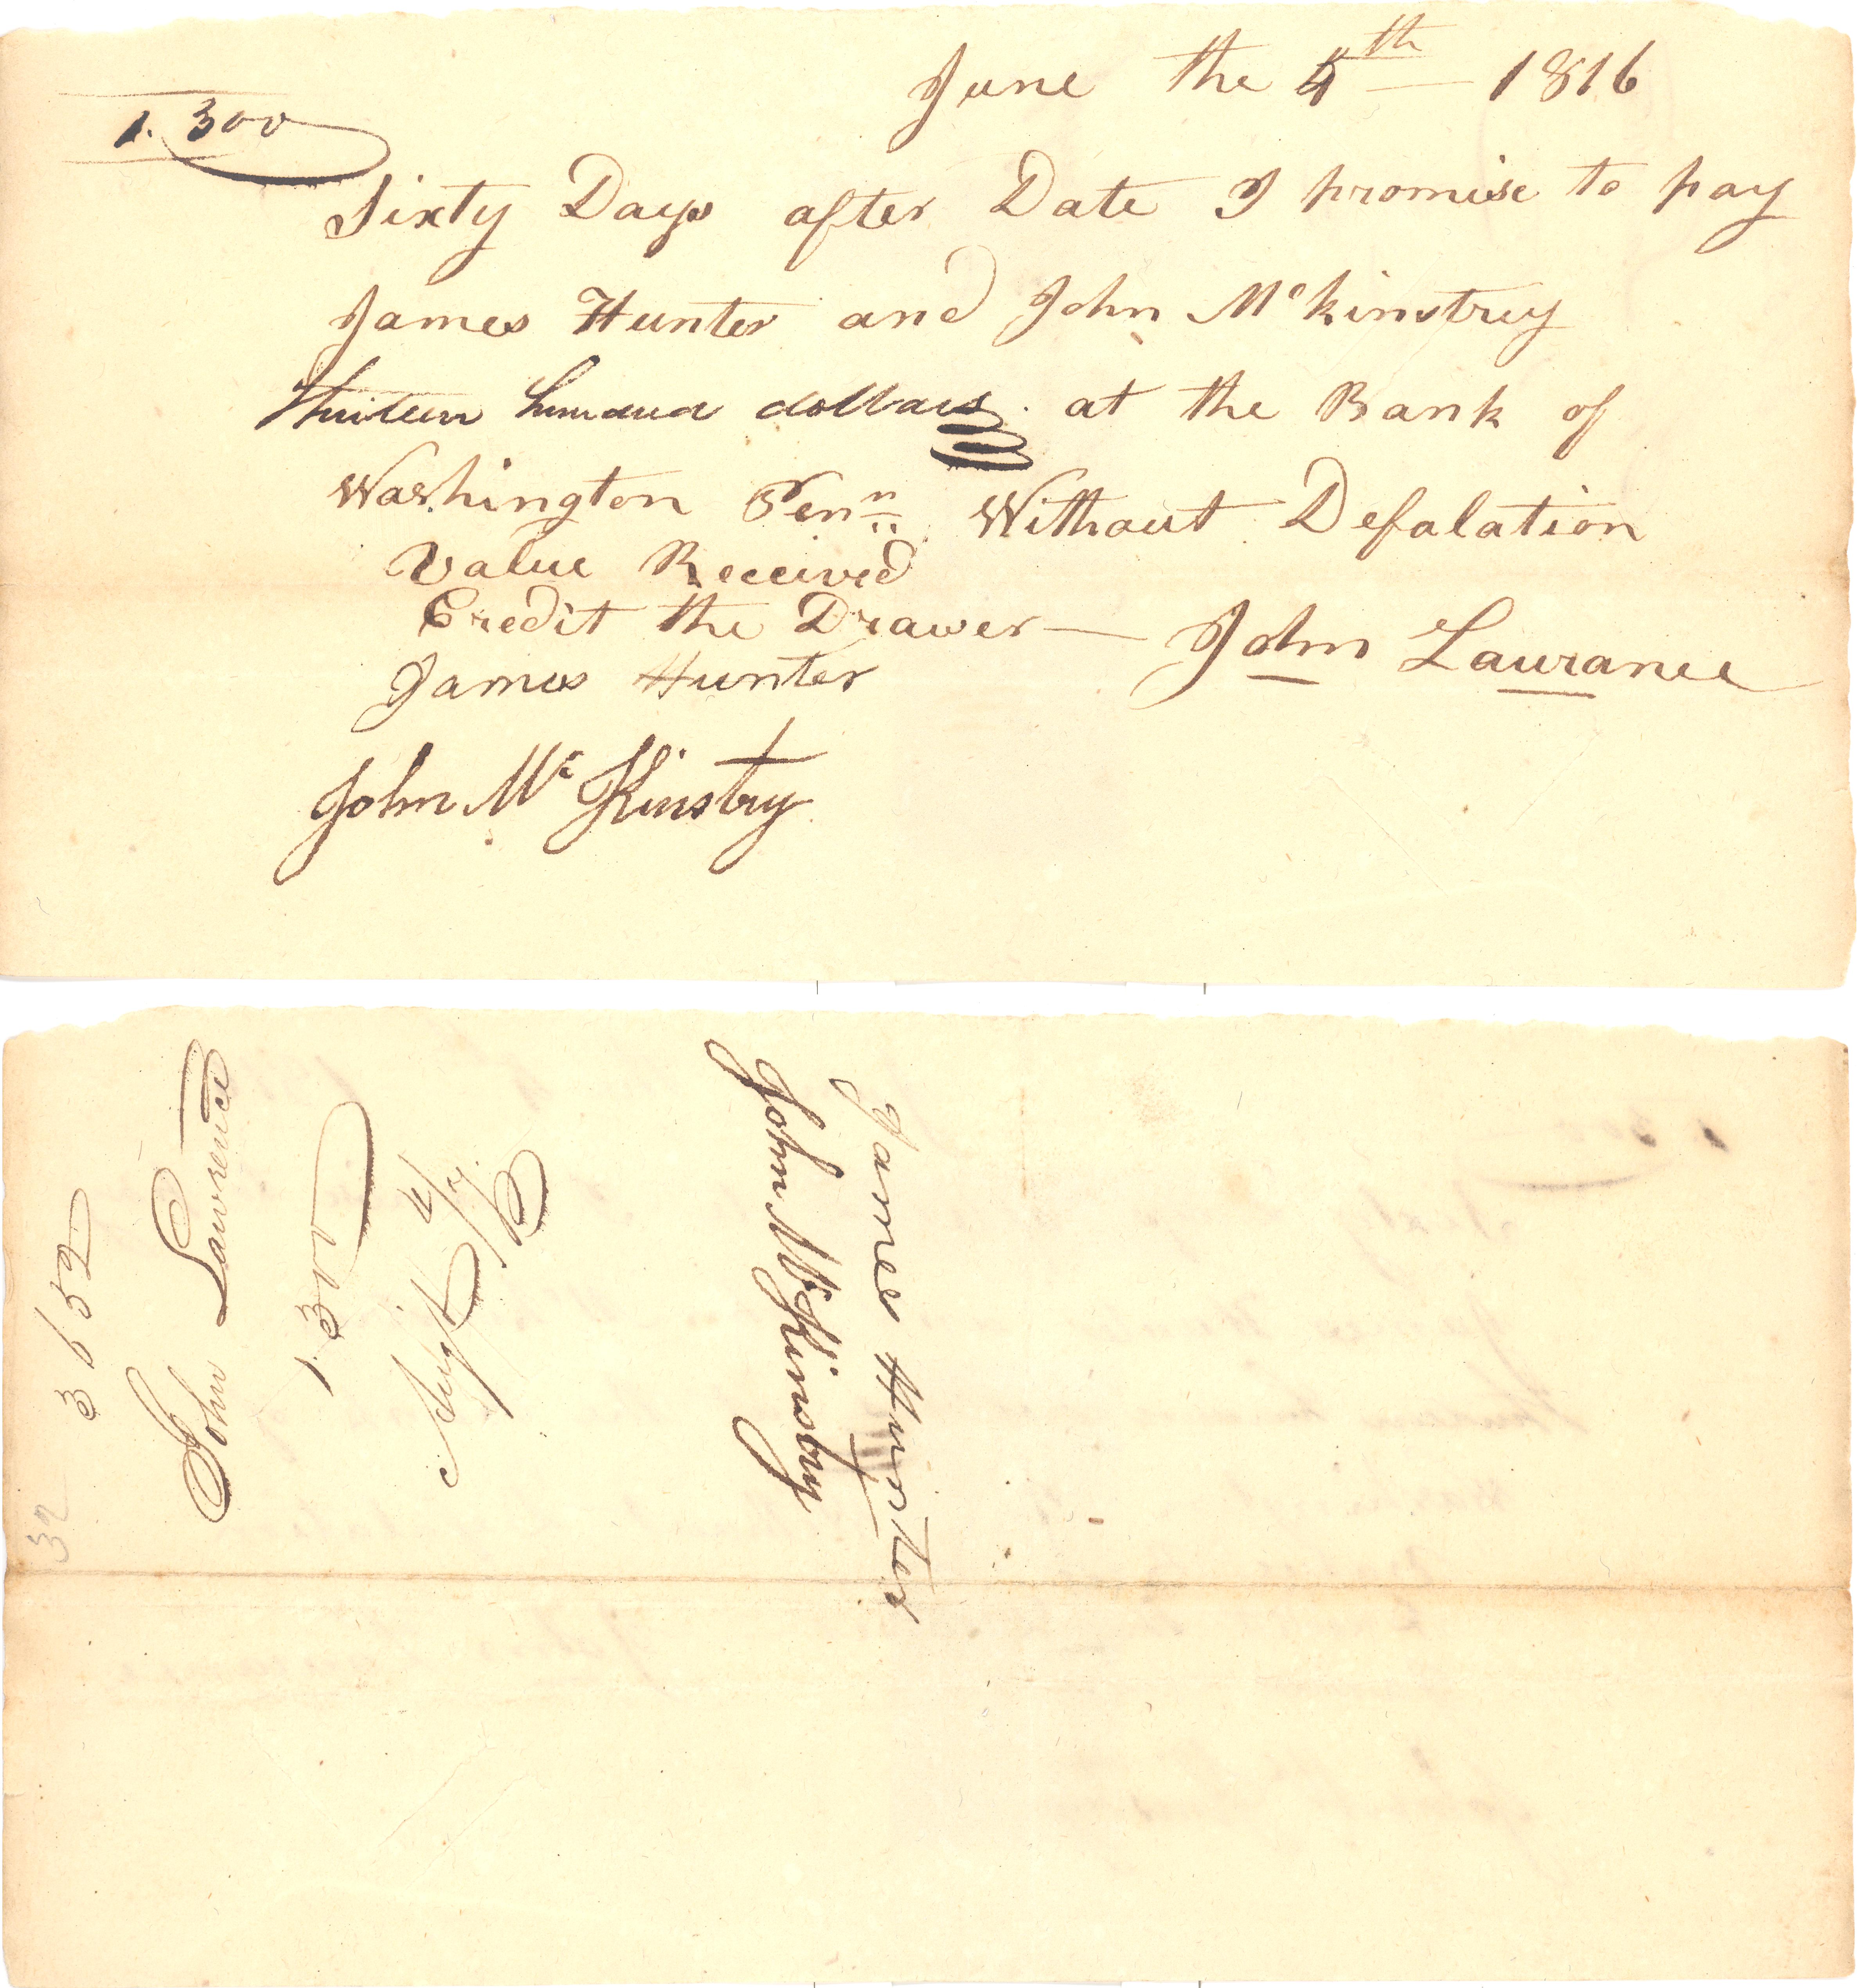 June the 4th 1816
1.300
Sixty Days after Date I promise to pay
James Hunter and John Mckinstry
thirteen hundred dollars. at the Bank of
Washington Penn Without Defalation
Value Received
Credit the Drawer — John Laurance
James Hunter
John McKinstry
3652
32
John Lawrence
1.300
Augt 4/7
John McKinstry
James Hunter